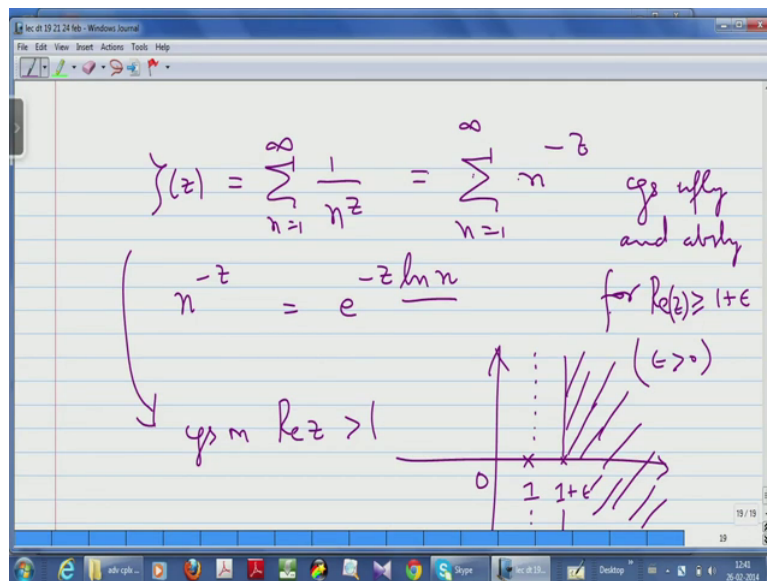 lec dt 19 21 24 feb - Windows Journal
File Edit View Insert Actions Tools Help
ζ(z) = ∑_{n=1}^{∞} 1/n^z = ∑_{n=1}^{∞} n^{-z}
cgs ufly
and absly
for Re(z) ≥ 1+ϵ
(ϵ>0)
n^{-z} = e^{-z ln n}
cgs in Re z > 1
0 1 1+ϵ
19 / 19
19
adv cplx...
Skype
lec dt 19...
Desktop
12:41
26-02-2014